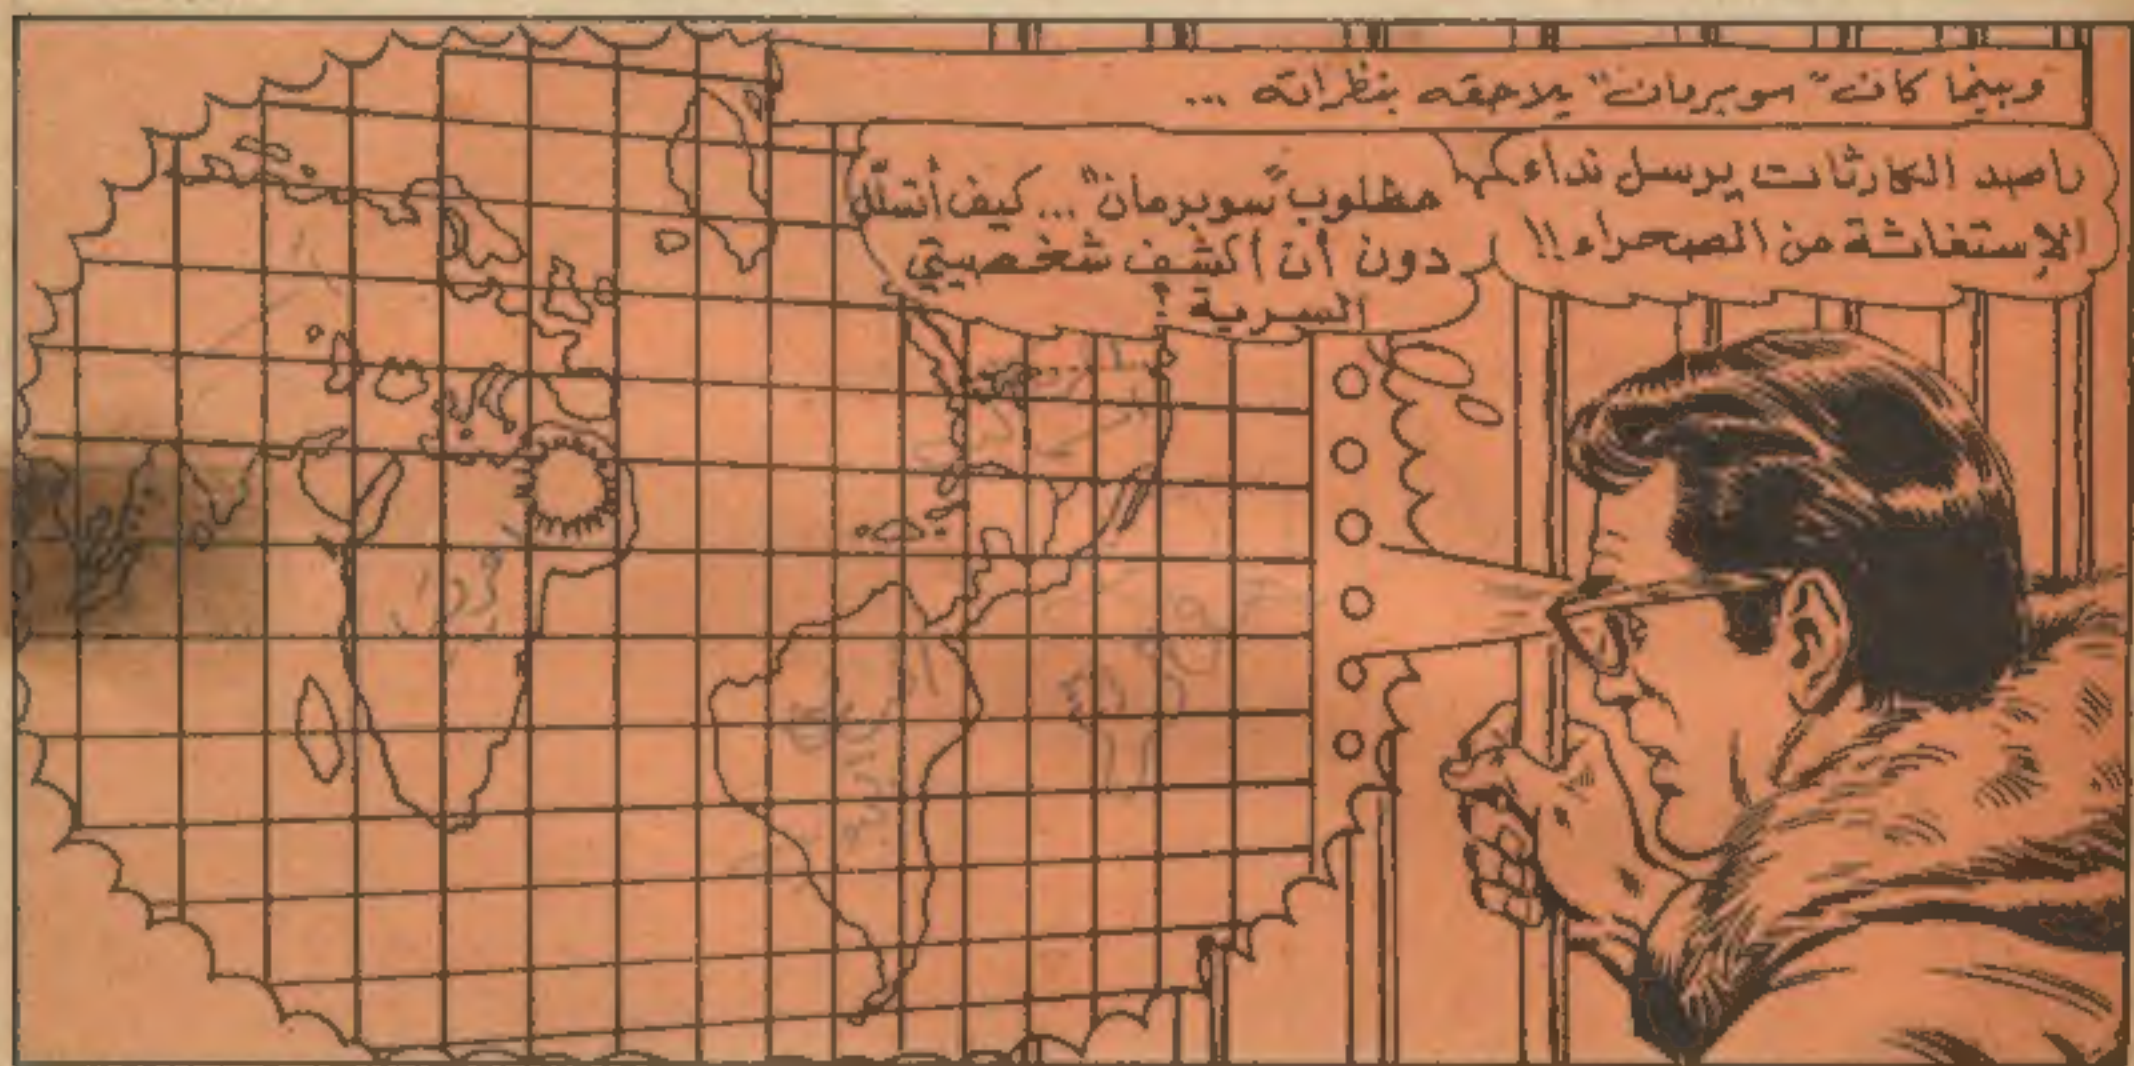 وبينما كان "سوبرمان" يلاحقه بنظراته ...
راصد الكارثات يرسل نداء
الإستغاثة من الصحراء!!
مطلوب "سوبرمان"... كيف أتسلّل
دون أن أكشف شخصيتي
السرية؟